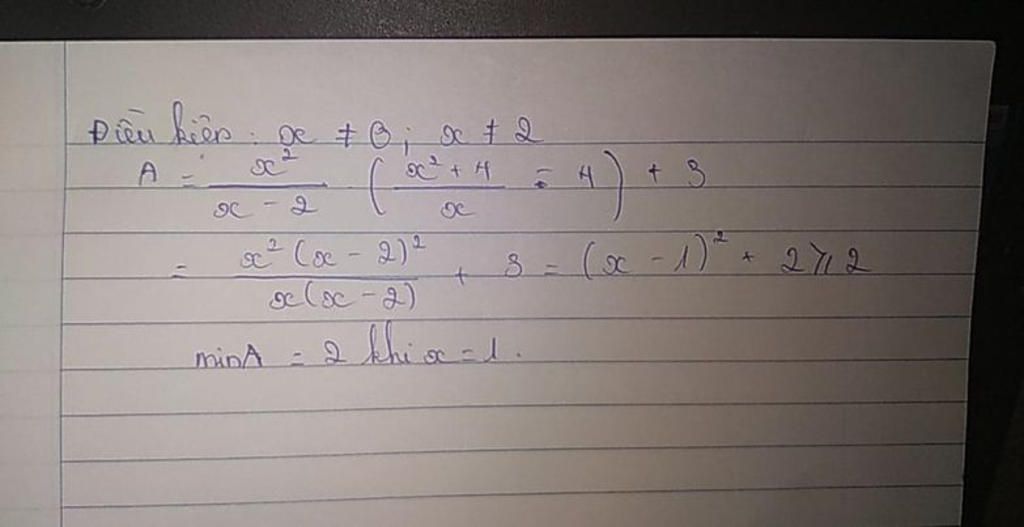 Điều kiện: x ≠ 0; x ≠ 2
A = x²/(x - 2) · ((x² + 4)/x - 4) + 3
= x²(x - 2)²/(x(x - 2)) + 3 = (x - 1)² + 2 ⩾ 2
minA = 2 khi x = 1.